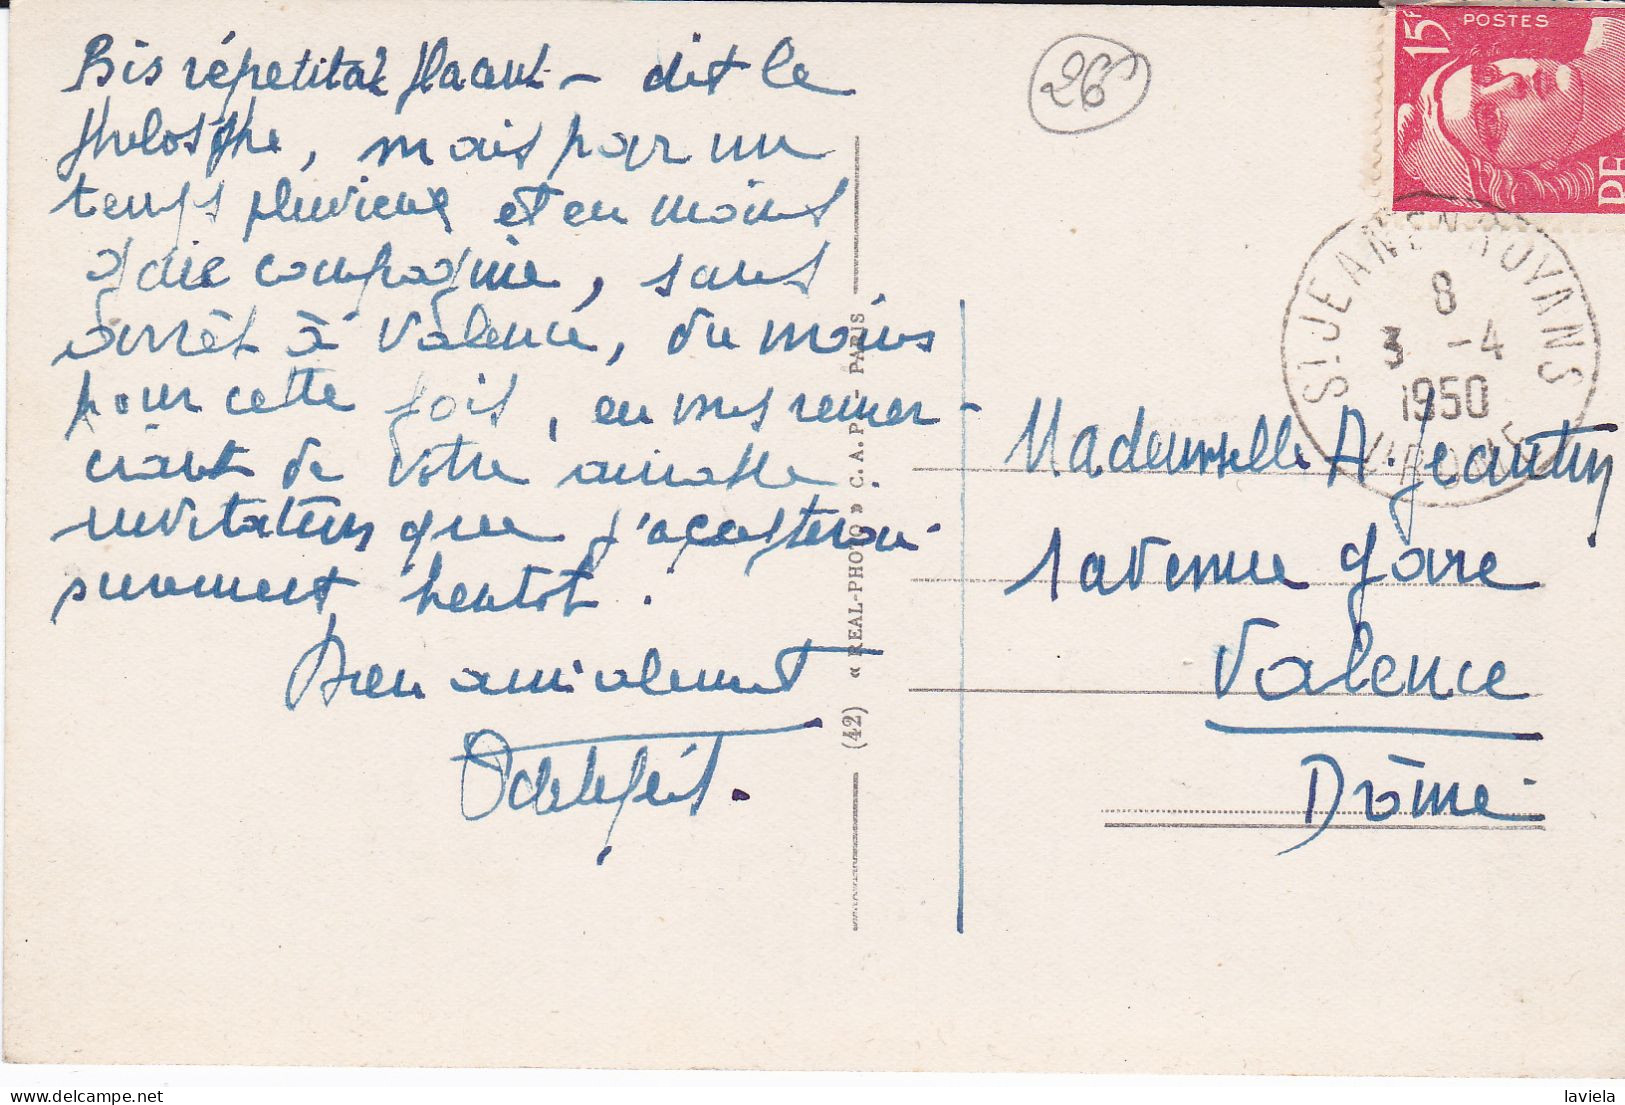 Bis répetitat placent - dit le
philosophe, mais par un
temps pluvieux et en moins
gaie compagnie, sans
arrêt à Valence, du moins
pour cette fois, en vous remer-
ciant de votre aimable
invitation que j'accepterai
surement bientot.
Bien amicalement
26
15F
POSTES
RF
ST JEAN-EN-ROYANS
8
3 -4
1950
Mademoiselle A. Jeantin
1 avenue gare
Valence
Drôme
(42) « REAL-PHOTO » C. A. P. - PARIS
delcampe.net
laviela